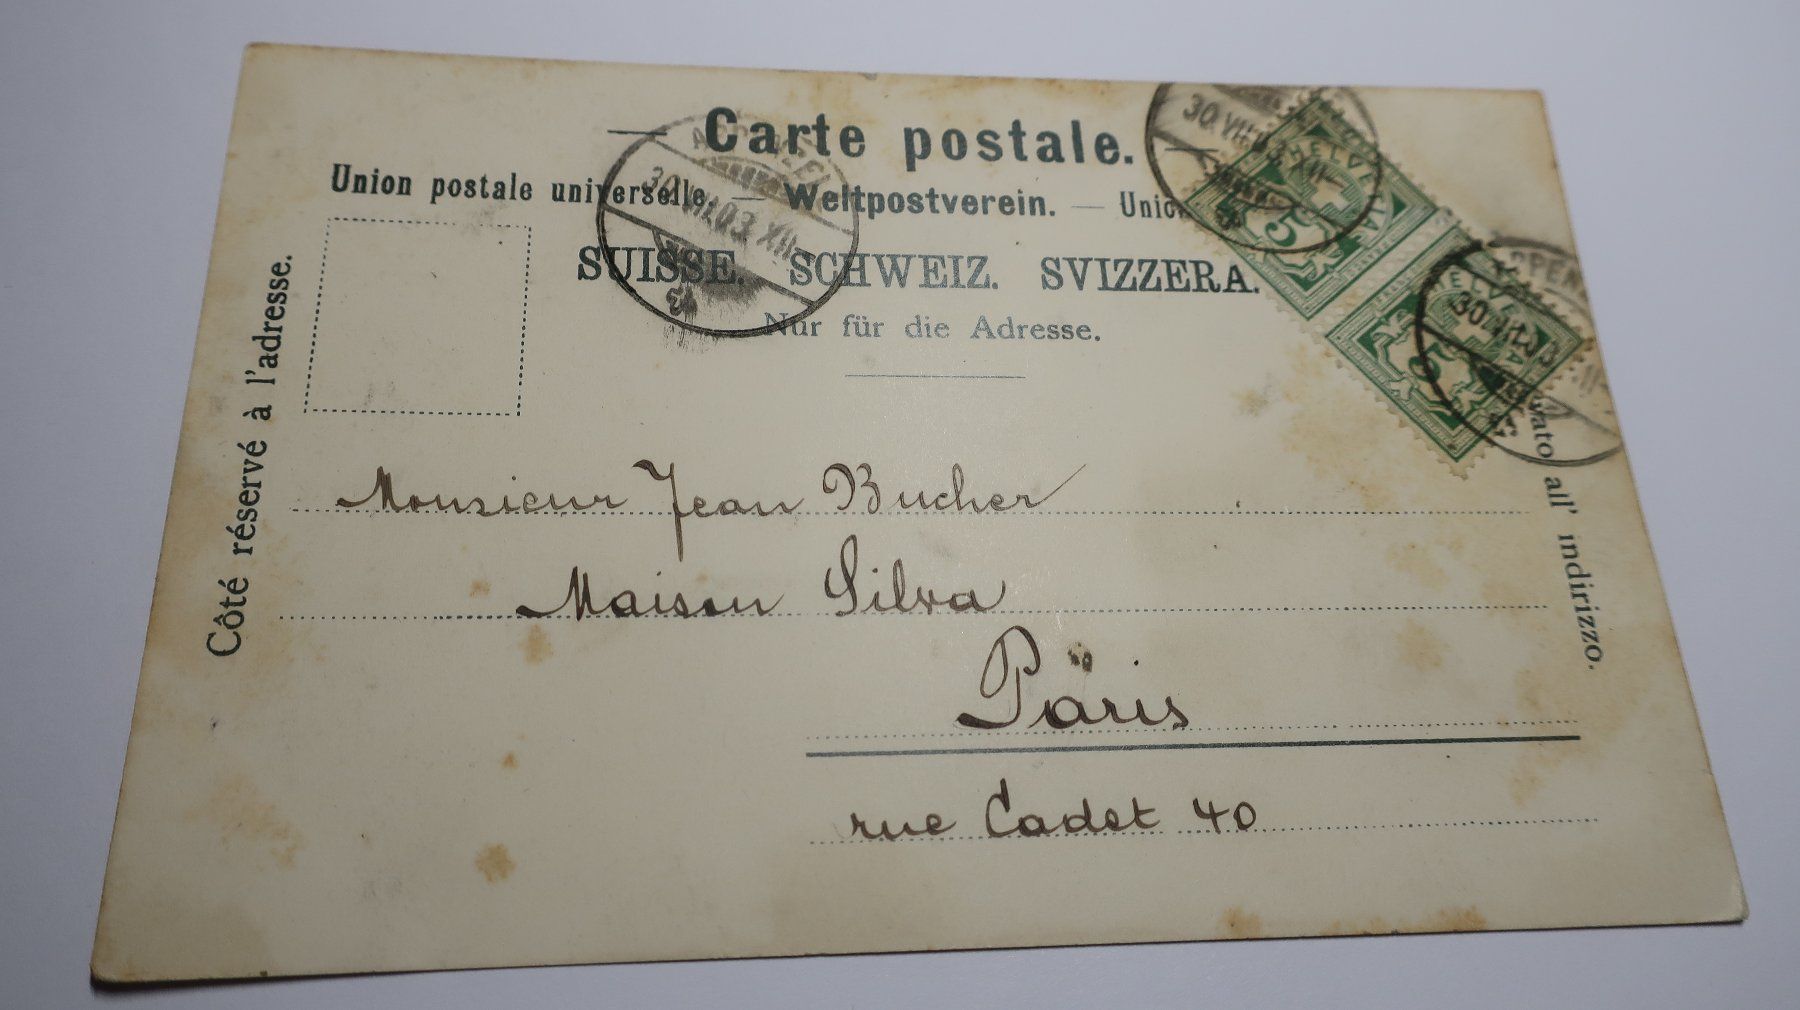 — Carte postale. —
Union postale universelle. — Weltpostverein. — Unio
SUISSE. SCHWEIZ. SVIZZERA.
Nur für die Adresse.
Côté réservé à l'adresse.
all' indirizzo.
Monsieur Jean Bucher
Maison Silva
Paris
rue Cadet 40
APPENZELL
30.VII.03.XII—
30.VII.03.XII—
HELVETIA
5
APPENZ
30.VII.03
HELVETIA
5